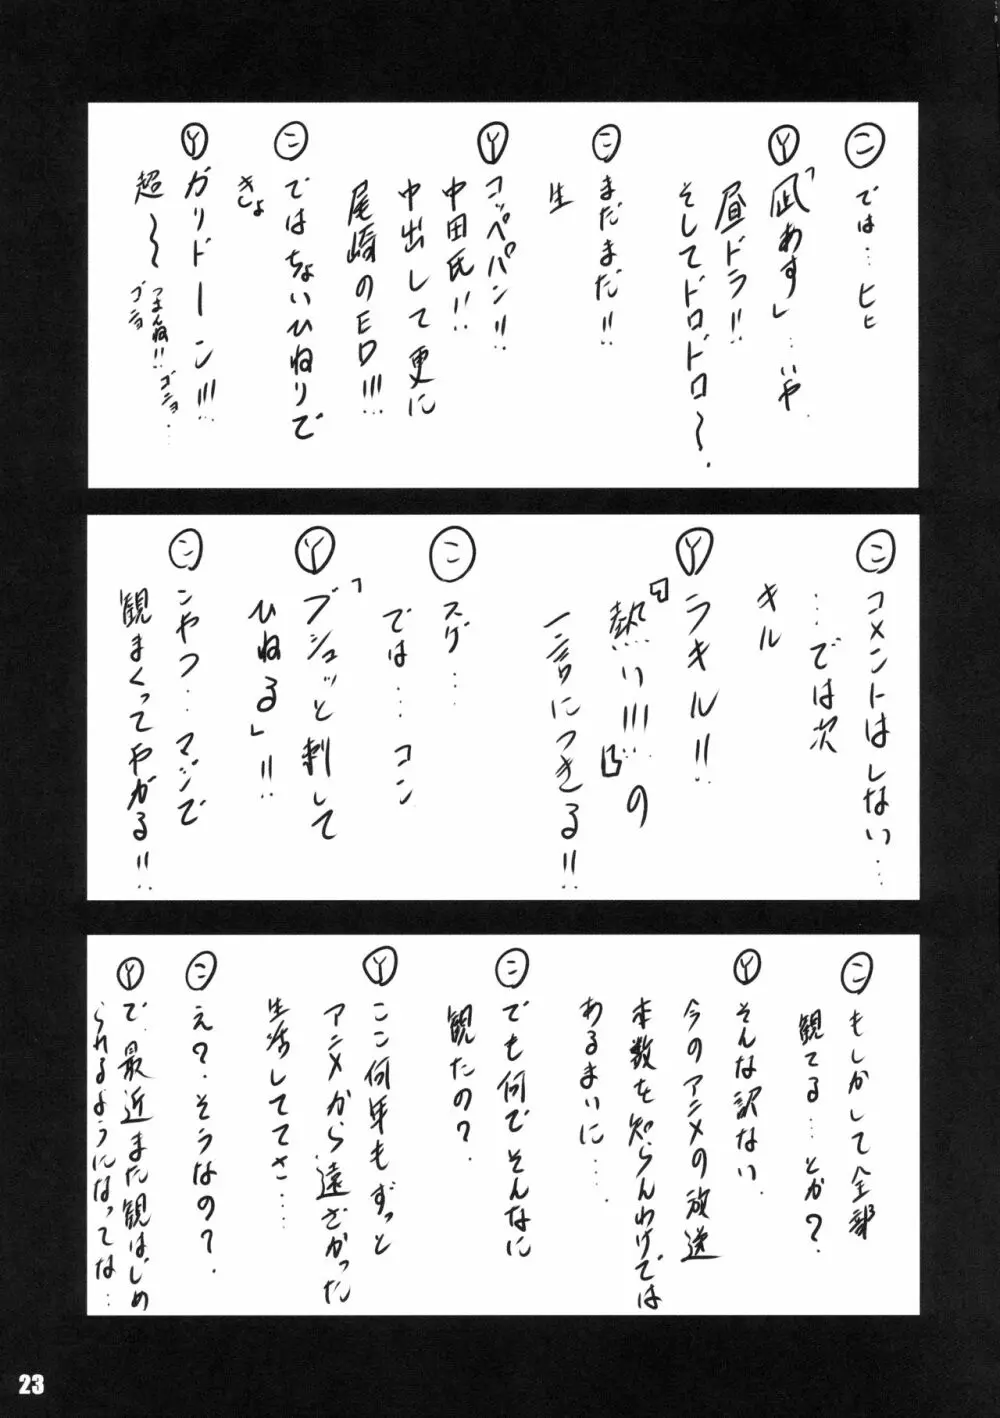 ㋙ では…ヒヒ
Ⓨ 「凪あす」…いや
昼ドラ!!
そしてドロドロ～.
㋙ まだまだ!!
生
Ⓨ コッペパン!!
中田氏!!
中出しして更に
尾崎のED!!!
㋙ ではちょいひねりで
きしょ
Ⓨ ガリドーン!!!
超～
つまんね!!ゴニョ…
ゴニョ
㋙ コメントはしない…
…では次
キル
Ⓨ ラキル!!
『熱い!!!』の
一言につきる!!
㋙ スゲ…
では…コン
Ⓨ 「ブシュッと刺して
ひねる」!!
㋙ こやつ…マジで
観まくってやがる!!
㋙ もしかして全部
観てる…とか?
Ⓨ そんな訳ない.
今のアニメの放送
本数を知らんわけでは
あるまいに…
㋙ でも何でそんなに
観たの?
Ⓨ ここ何年もずっと
アニメから遠ざかった
生活しててさ…
㋙ え?そうなの?
Ⓨ で、最近また観はじめ
られるようになってな…
23